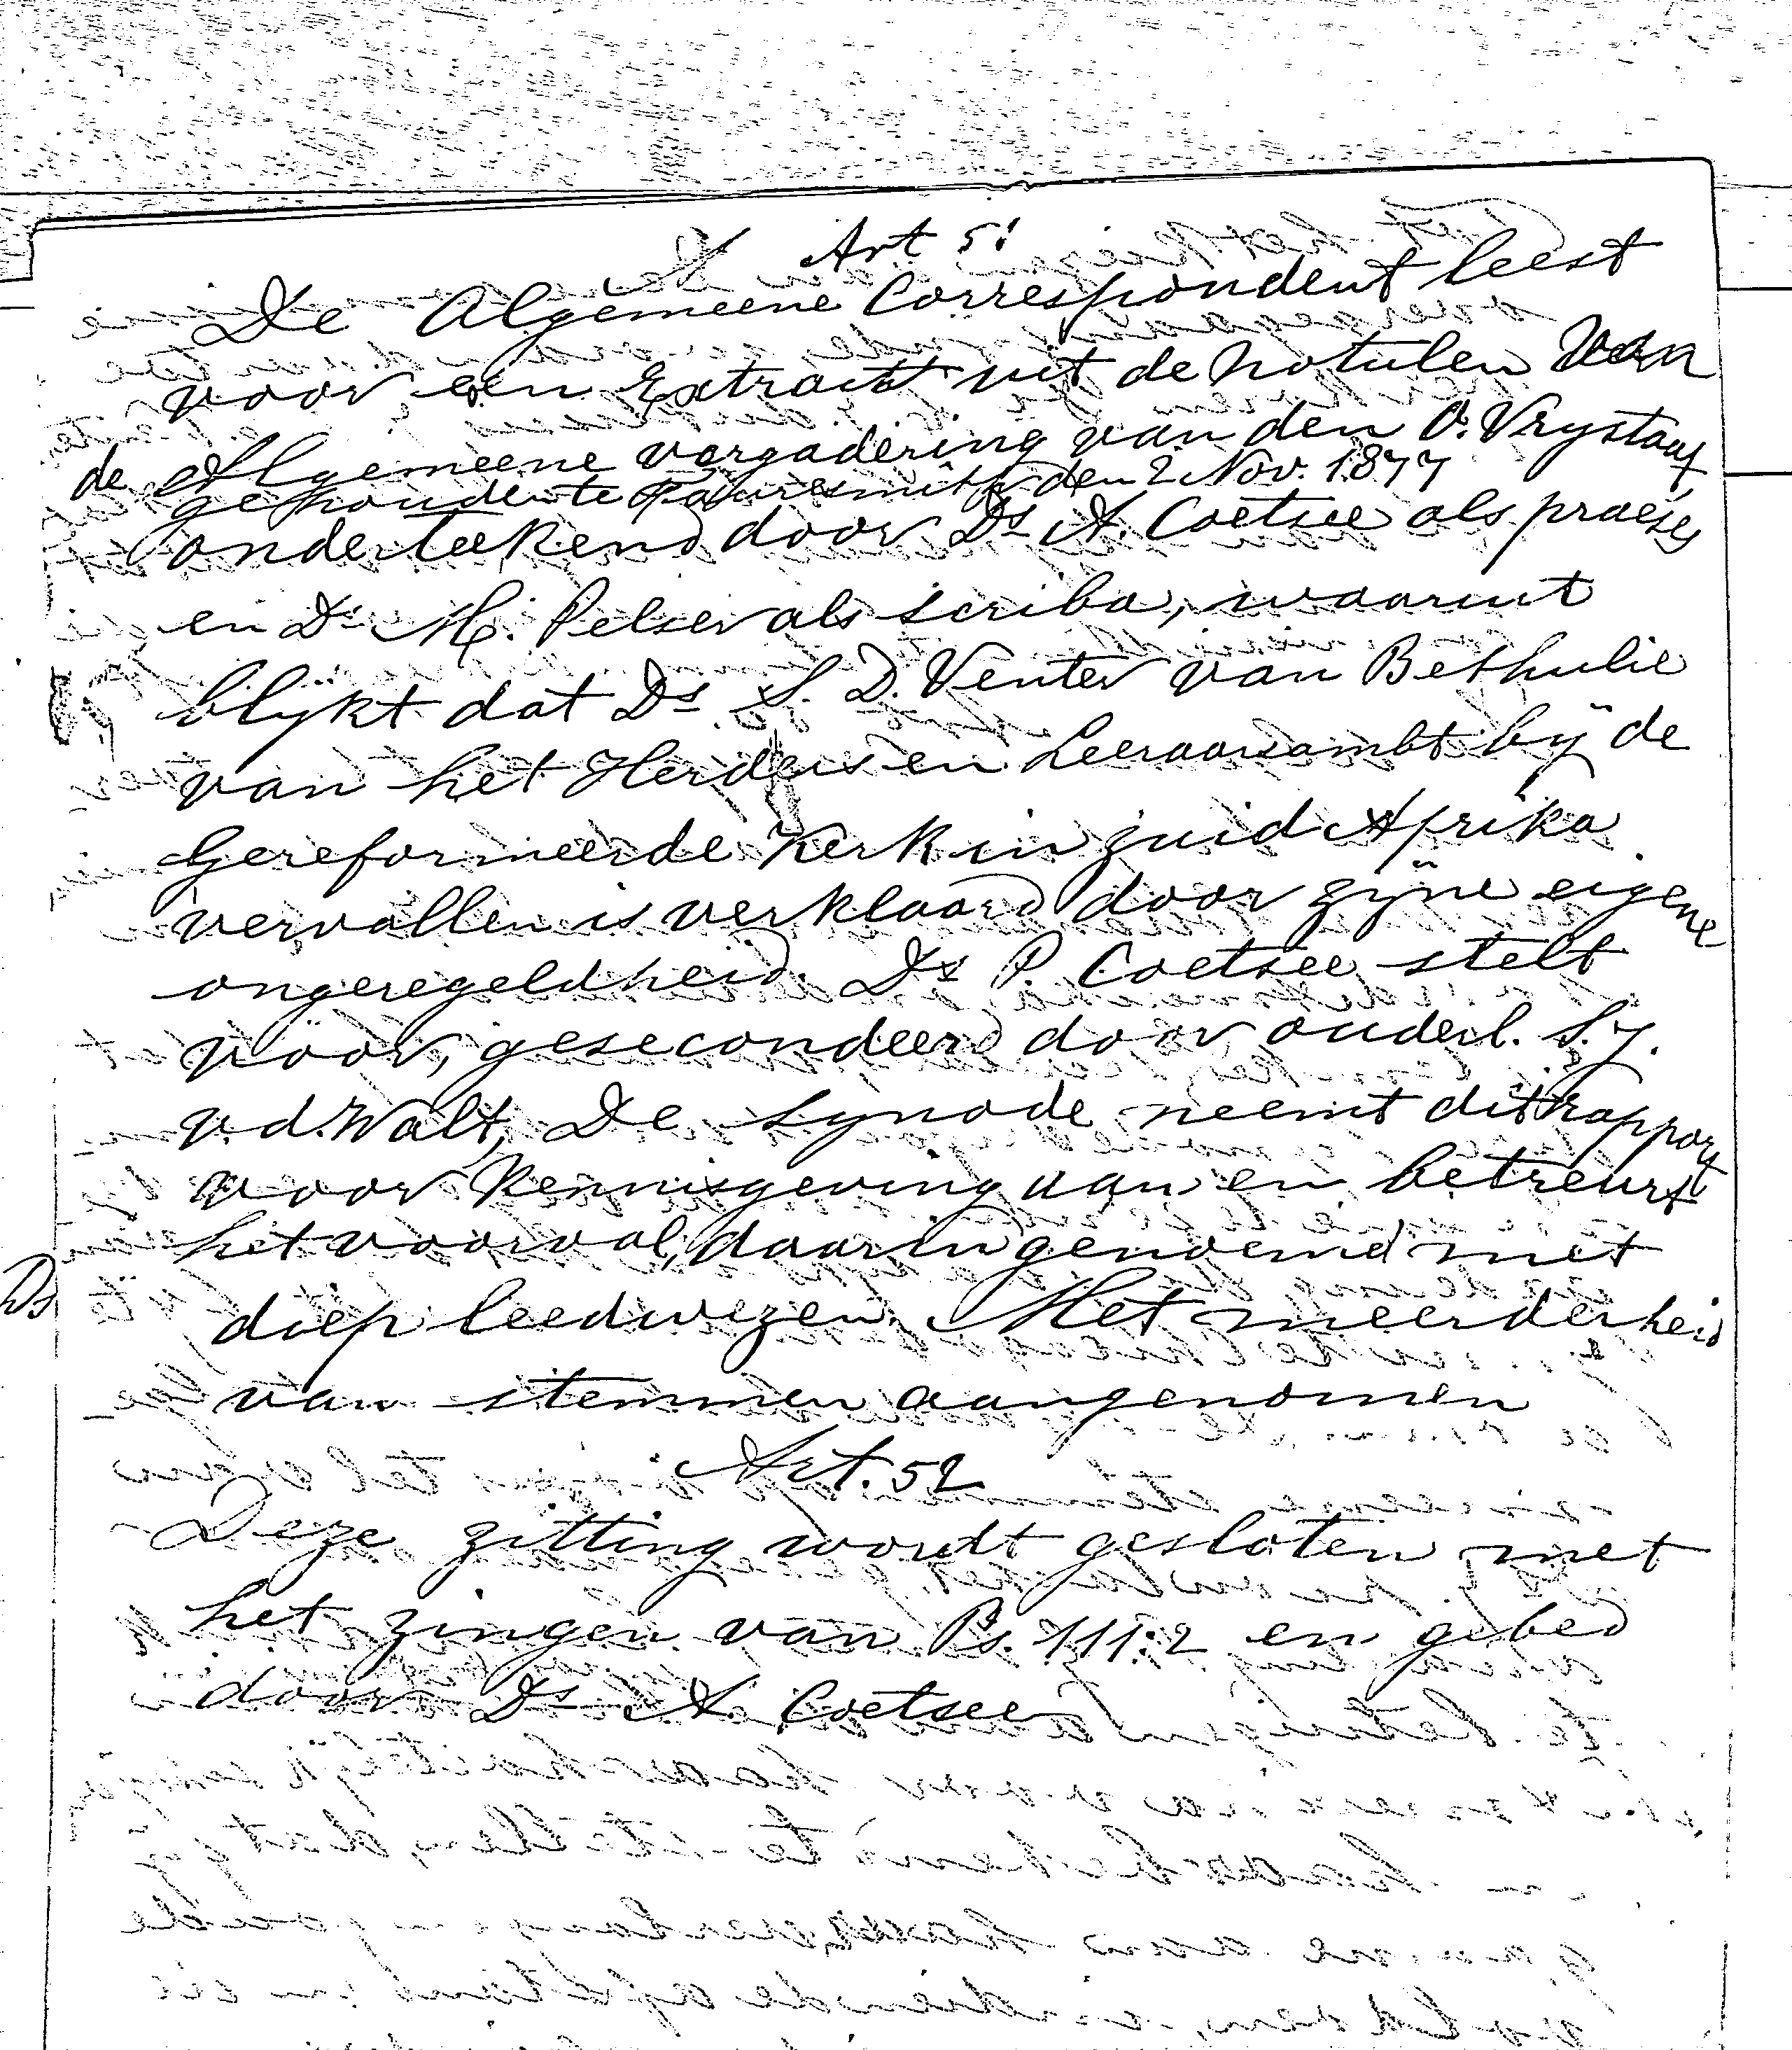 Art 51
De Algemeene Correspondent leest
voor een Extract uit de Notulen van
de Algemeene vergadering van den O. Vrystaat
gehouden te Fauresmith den 2 Nov. 1877
onderteekend door Ds A. Coetsee als praeses
en Ds M. Pelser als scriba, waaruit
blijkt dat Ds S. D. Venter van Bethulie
van het Herder en Leeraarsambt bij de
Gereformeerde Kerk in Zuid Afrika
vervallen is verklaard door zijne eigene
ongeregeldheid. Ds P. Coetsee stelt
voor, gesecondeerd door ouderl. S. J.
v.d. Walt, De Synode neemt dit rapport
voor kennisgeving aan en betreurt
het voorval, daarin genoemd met
diep leedwezen. Met meerderheid
van stemmen aangenomen
Art. 52
Deze zitting wordt gesloten met
het zingen van Ps. 111:2 en gebed
door Ds A. Coetsee